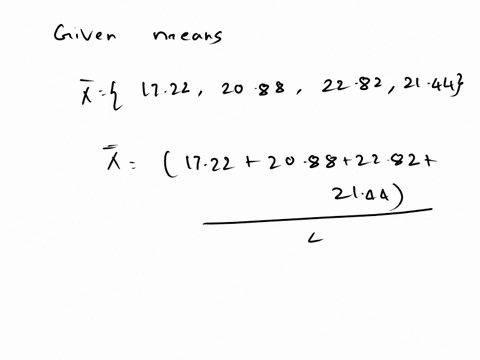 Given means
X̄ = { 17.22, 20.88, 22.82, 21.44}
X̿ = (17.22 + 20.88 + 22.82 +
21.44)
4